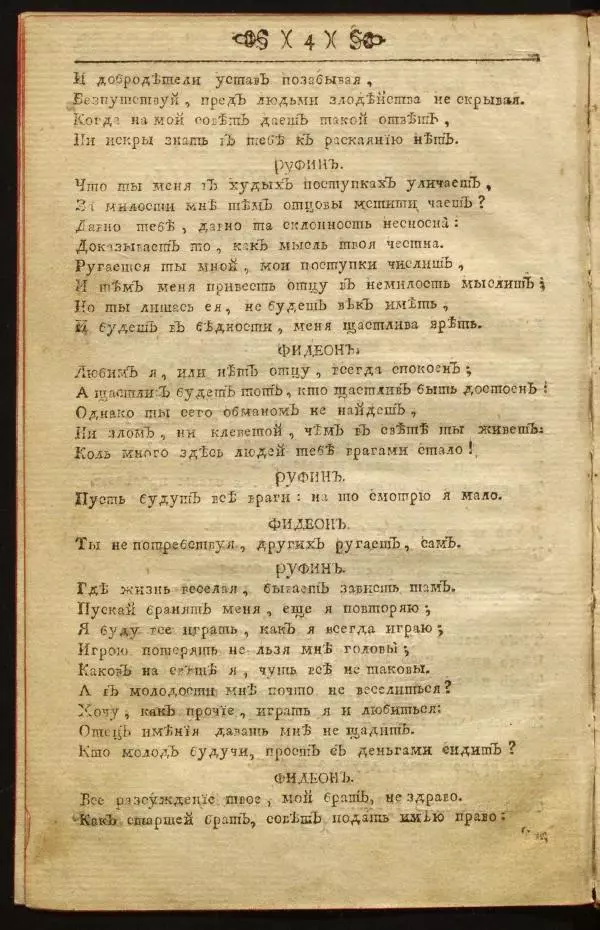 )( 4 )(
И добродѣтели уставЪ позабывая,
Безпутствуй, предЪ людьми злодѣйства не скрывая.
Когда на мой совѣтЪ даешь такой отвѣтЪ,
Ни искры знать вЪ тебѣ кЪ раскаянїю нѣтЪ.
РУФИНЪ.
Что ты меня вЪ худыхЪ поступкахЪ уличаешь,
За милости мнѣ тѣмЪ отцовы мстити чаешь?
Давно тебѣ, давно та склонность несносна:
Доказываетъ то, какЪ мысль твоя честна.
Ругаешся ты мной, мои поступки числишь,
И тѣмЪ меня привесть отцу вЪ немилость мыслишь;
Но ты лишась ея, не будешь вѣкЪ имѣть,
И будешь вЪ бѣдности, меня щастлива зрѣть.
ФИДЕОНЪ.
ЛюбимЪ я, или нѣтЪ отцу, всегда спокоенЪ;
А щастливЪ будетЪ тотЪ, кто щастливЪ быть достоенЪ!
Однако ты сего обманомЪ не найдешь,
Ни зломЪ, ни клеветой, чѣмЪ вЪ свѣтѣ ты живешь.
Коль много здѣсь людей тебѣ врагами стало!
РУФИНЪ.
Пусть будутЪ всѣ враги: на то смотрю я мало.
ФИДЕОНЪ.
Ты непотребствуя, другихЪ ругаешь, самЪ.
РУФИНЪ.
Гдѣ жизнь веселая, бываетЪ зависть тамЪ.
Пускай бранятЪ меня, еще я повторяю;
Я буду все играть, какЪ я всегда играю;
Игрою потерять не льзя мнѣ головы;
КаковЪ на свѣтѣ я, чуть всѣ не таковы.
А вЪ молодости мнѣ почто не веселиться?
Хочу, какЪ прочїе, играть я и любиться:
ОтецЪ имѣнїя давать мнѣ не щадитЪ.
Кто молодЪ будучи, простЪ сЪ деньгами сидитЪ?
ФИДЕОНЪ.
Все разсужденїе твое, мой братЪ, не здраво.
КакЪ старшей братЪ, совѣтЪ подать имѣю право: